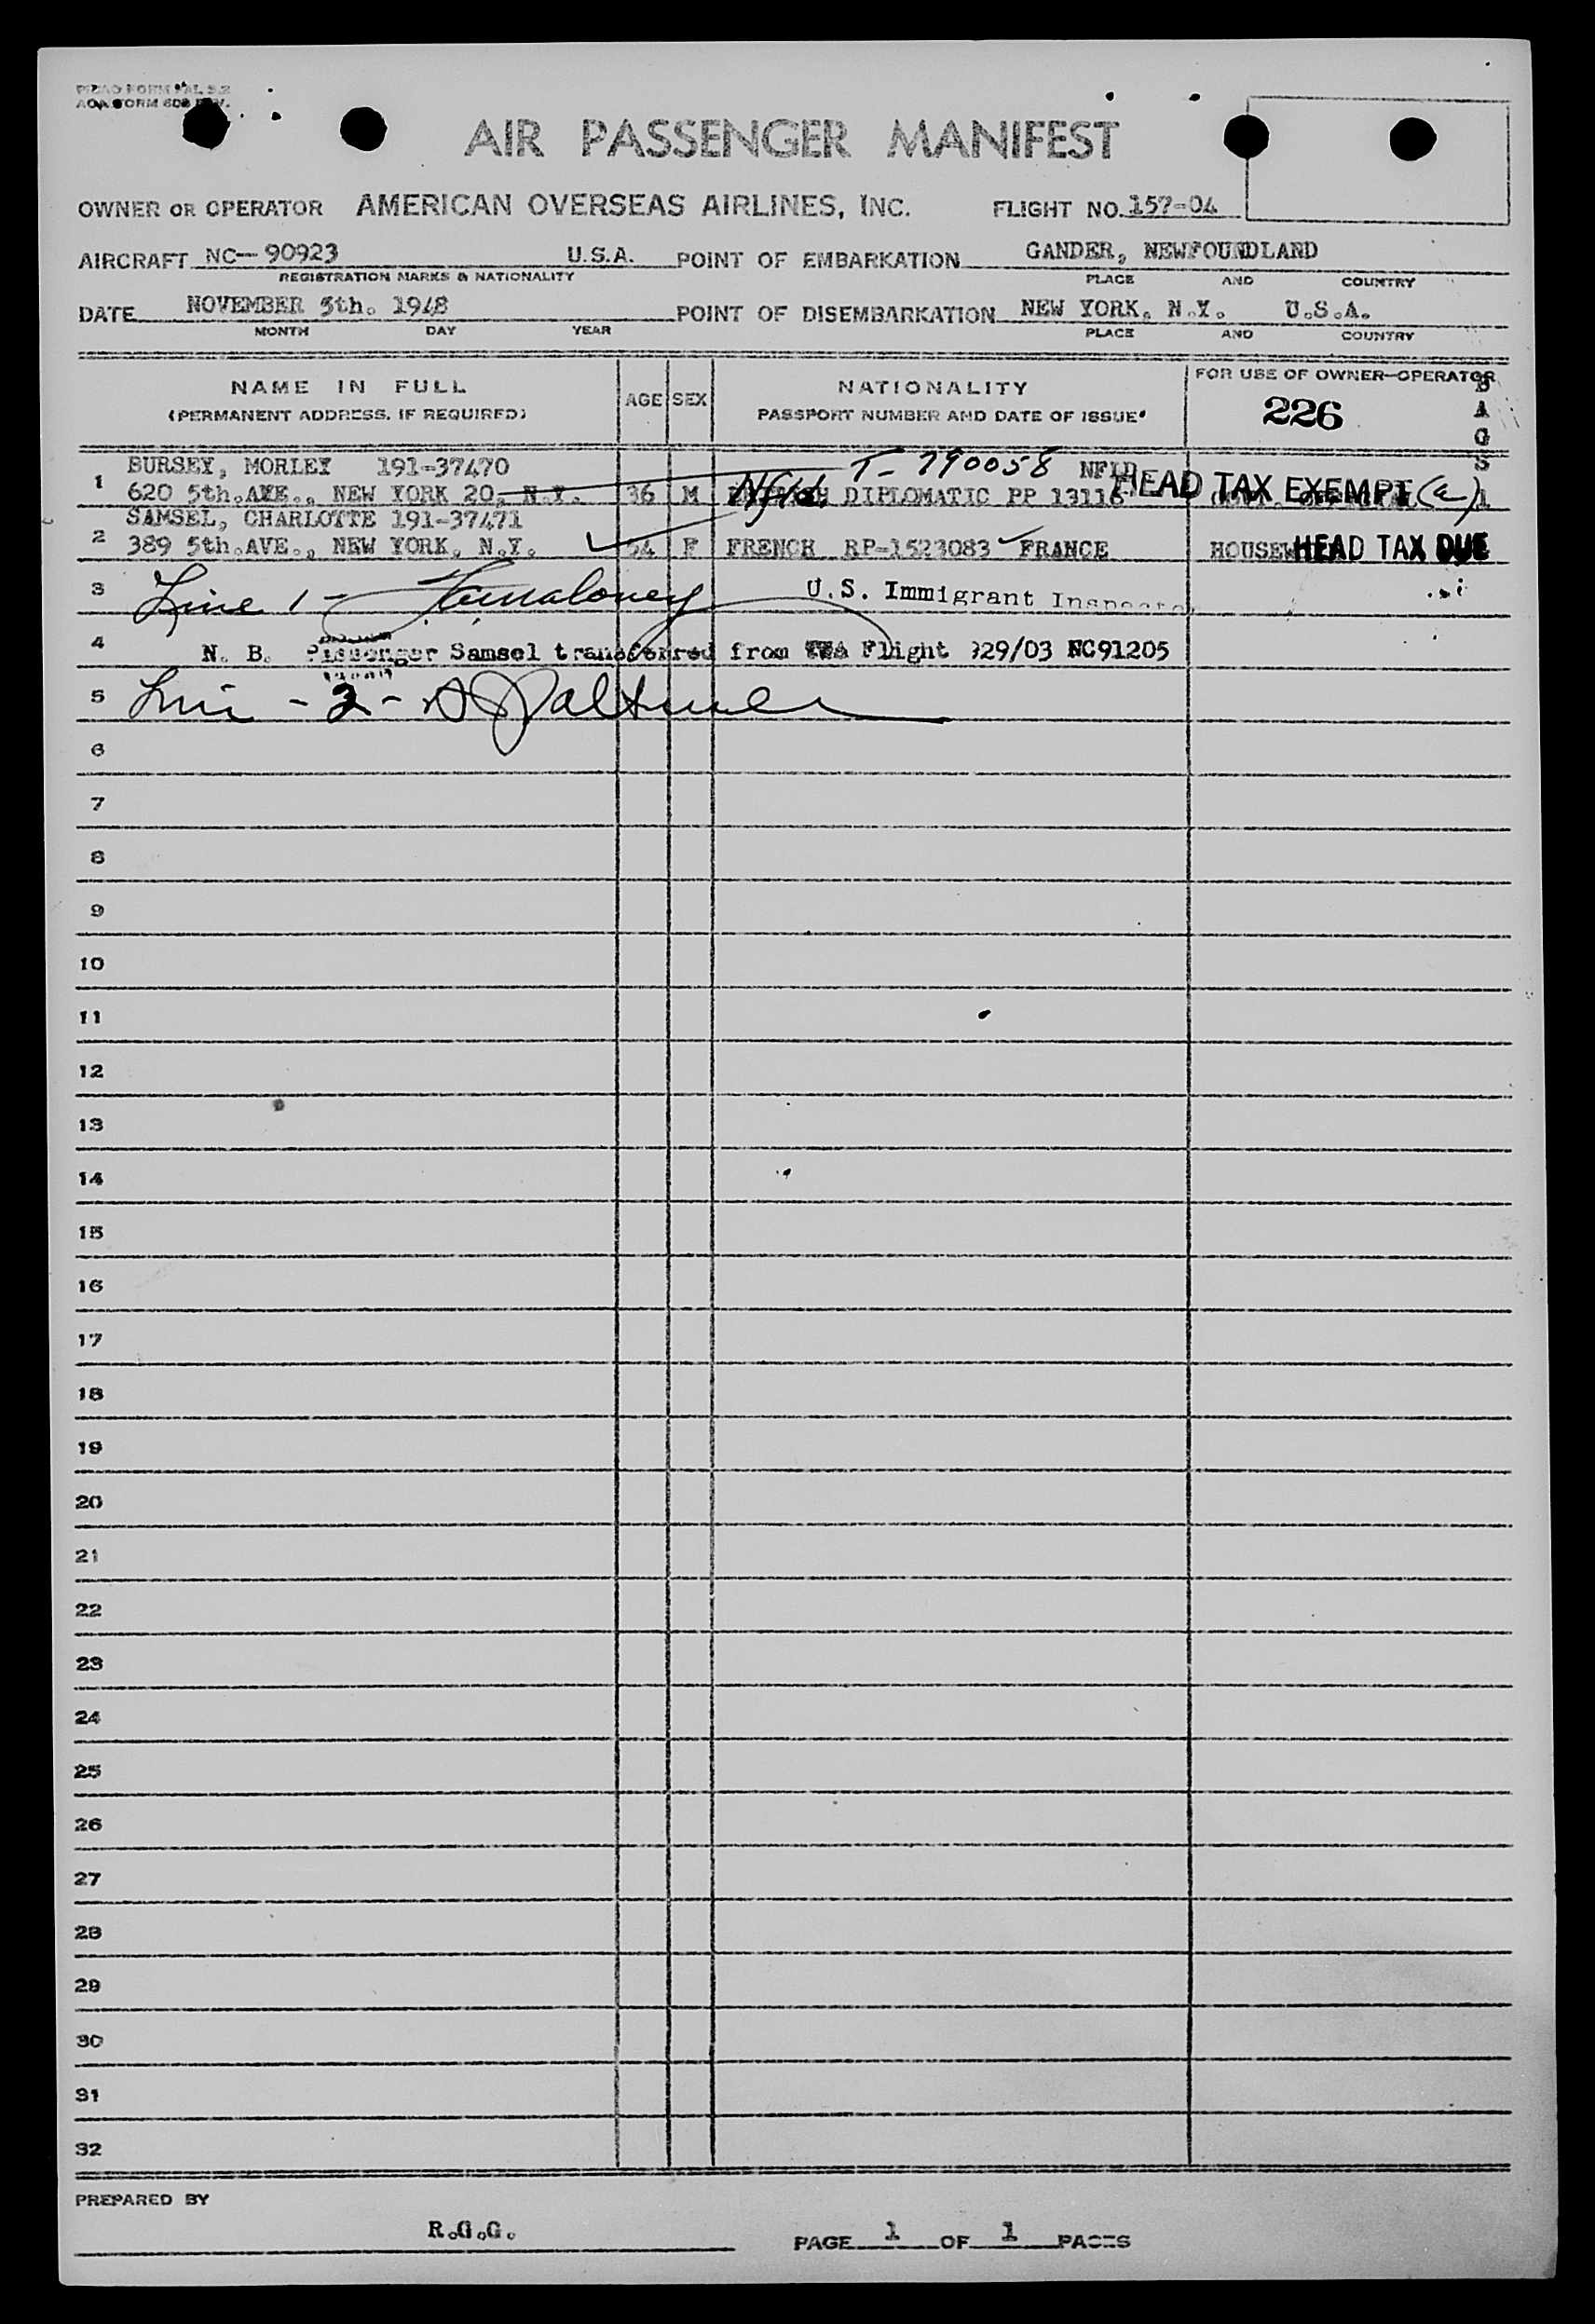 AOA FORM 608 REV.
AIR PASSENGER MANIFEST
OWNER OR OPERATOR AMERICAN OVERSEAS AIRLINES, INC. FLIGHT NO. 157-04
AIRCRAFT NC-90923 U.S.A. POINT OF EMBARKATION GANDER, NEWFOUNDLAND
REGISTRATION MARKS & NATIONALITY PLACE AND COUNTRY
DATE NOVEMBER 5th. 1948 POINT OF DISEMBARKATION NEW YORK, N.Y. U.S.A.
MONTH DAY YEAR PLACE AND COUNTRY
NAME IN FULL AGE SEX NATIONALITY FOR USE OF OWNER-OPERATOR
(PERMANENT ADDRESS, IF REQUIRED) PASSPORT NUMBER AND DATE OF ISSUE* 226 BAGS
BURSEY, MORLEY 191-37470 T-790058 NFLD
1 620 5th.AVE., NEW YORK 20, N.Y. 36 M Nfld. DIPLOMATIC PP 13116 HEAD TAX EXEMPT 1
SAMSEL, CHARLOTTE 191-37471
2 389 5th.AVE., NEW YORK, N.Y. 54 F FRENCH RP-1523083 FRANCE HEAD TAX DUE
3 Line 1 - U.S. Immigrant Inspector
4 N. B. Passenger Samsel transferred from TWA Flight 929/03 NC91205
5 Line - 2 -
6
7
8
9
10
11
12
13
14
15
16
17
18
19
20
21
22
23
24
25
26
27
28
29
30
31
32
PREPARED BY
R.G.G. PAGE 1 OF 1 PAGES